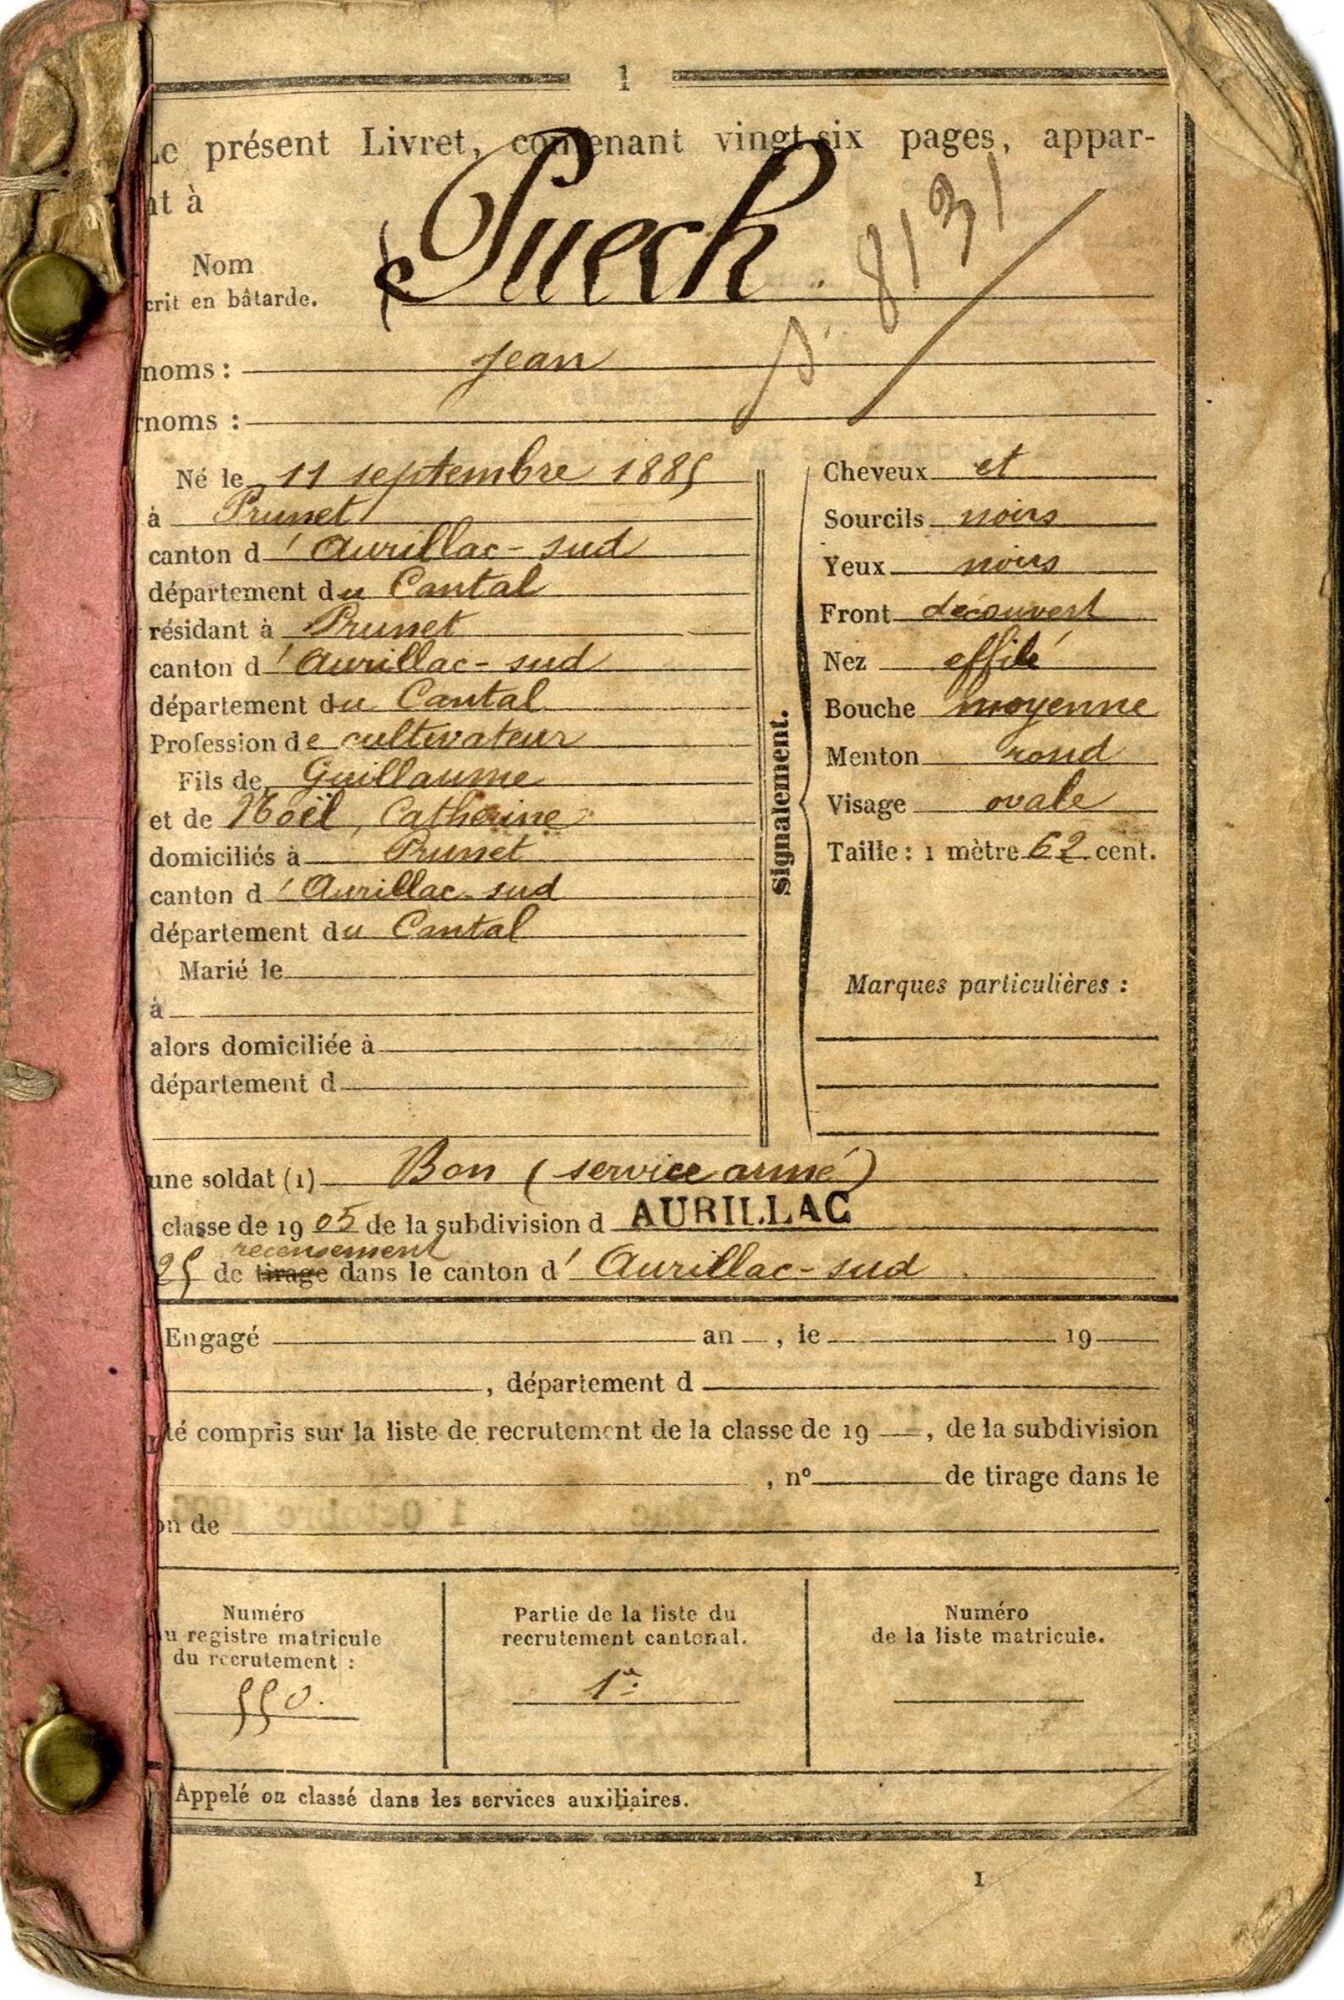 1
Le présent Livret, contenant vingt-six pages, appar-
nt à
Puech
Nom
crit en bâtarde.
S. 8131
noms : Jean
noms :
Né le 11 septembre 1885
à Prunet
canton d'Aurillac-sud
département du Cantal
résidant à Prunet
canton d'Aurillac-sud
département du Cantal
Profession de cultivateur
Fils de Guillaume
et de Noël, Catherine
domiciliés à Prunet
canton d'Aurillac-sud
département du Cantal
Marié le
à
alors domiciliée à
département d
Signalement.
Cheveux et
Sourcils noirs
Yeux noirs
Front découvert
Nez effilé
Bouche moyenne
Menton rond
Visage ovale
Taille : 1 mètre 62 cent.
Marques particulières :
une soldat (1) Bon (service armé)
classe de 1905 de la subdivision d AURILLAC
recensement
25 de tirage dans le canton d'Aurillac-sud
Engagé an , le 19
, département d
té compris sur la liste de recrutement de la classe de 19 , de la subdivision
, n° de tirage dans le
on de
Numéro
u registre matricule
du recrutement :
550.
Partie de la liste du
recrutement cantonal.
1re
Numéro
de la liste matricule.
Appelé ou classé dans les services auxiliaires.
1